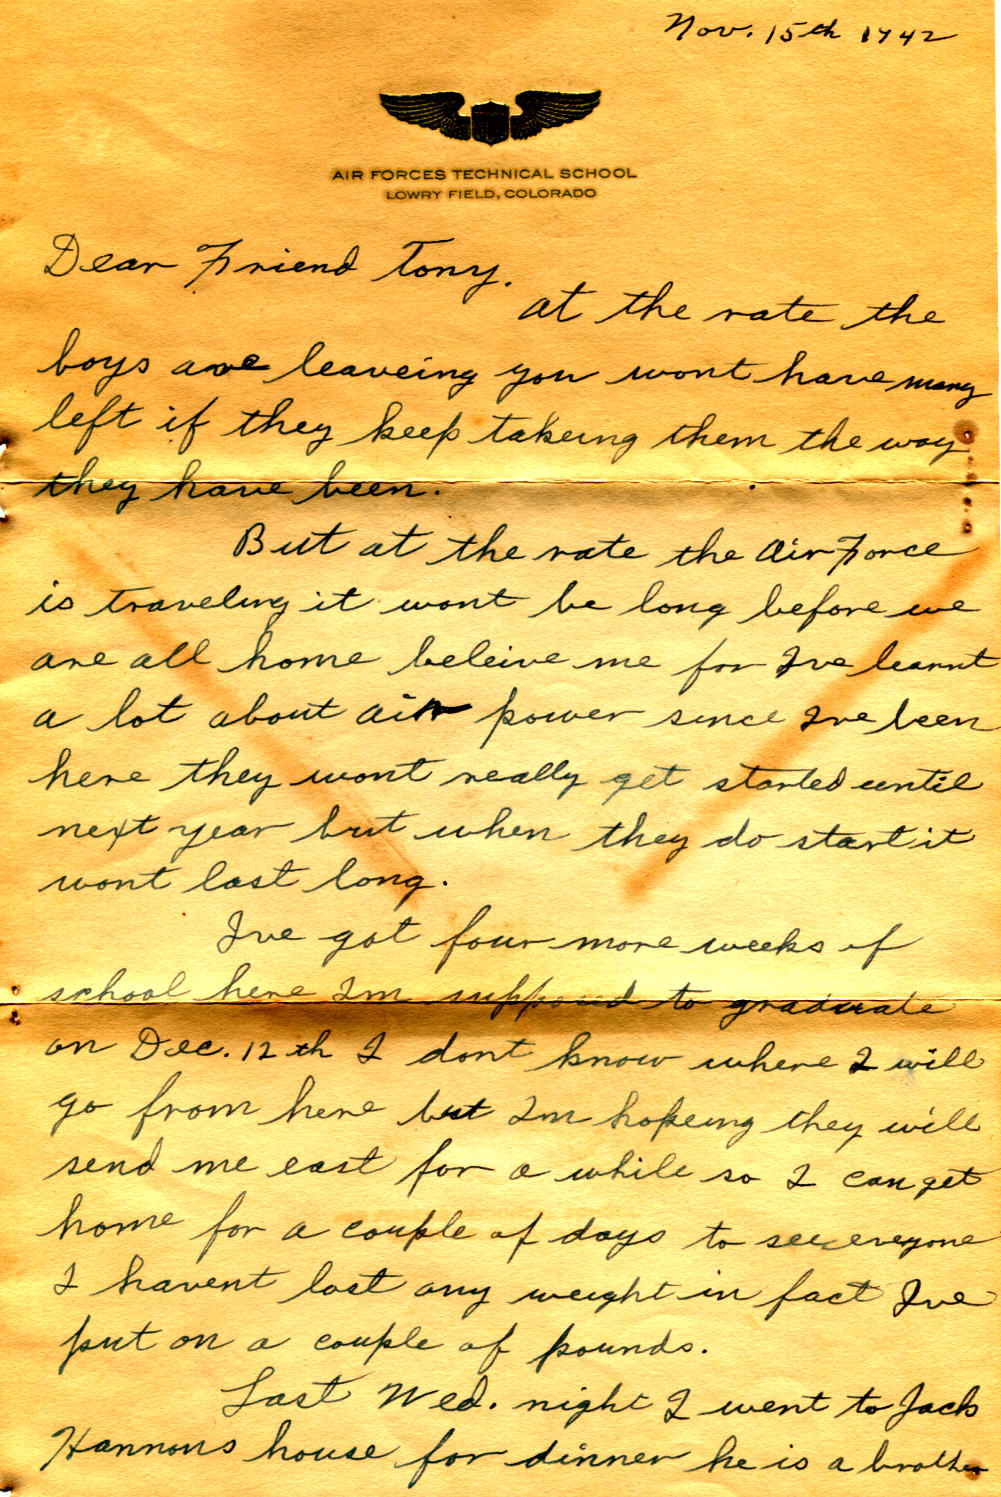 Nov. 15th 1942
AIR FORCES TECHNICAL SCHOOL
LOWRY FIELD, COLORADO
Dear Friend Tony.
at the rate the
boys are leaveing you wont have many
left if they keep takeing them the way
they have been.
But at the rate the Air Force
is traveling it wont be long before we
are all home beleive me for I've learnt
a lot about air power since I've been
here they wont really get started until
next year but when they do start it
wont last long.
I've got four more weeks of
school here Im supposed to graduate
on Dec. 12th I dont know where I will
go from here but Im hopeing they will
send me east for a while so I can get
home for a couple of days to see everyone
I havent lost any weight in fact I've
put on a couple of pounds.
Last Wed. night I went to Jack
Hannons house for dinner he is a brother